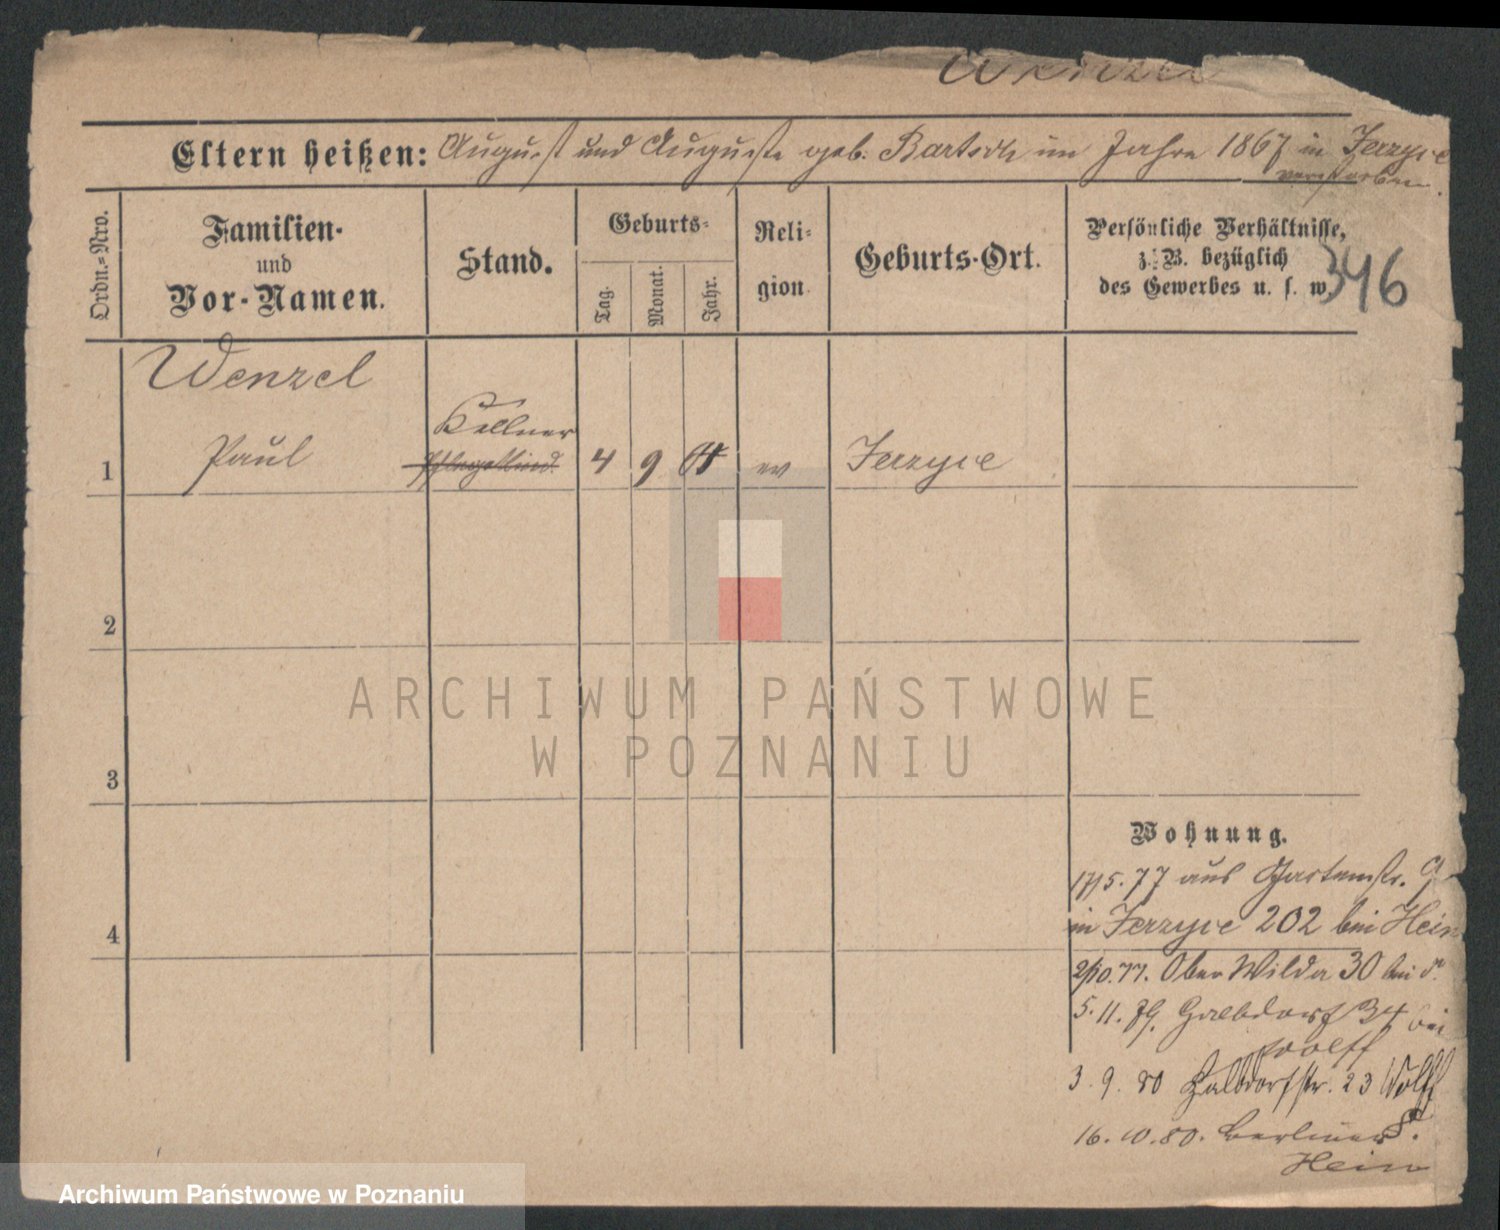 Wenzel
Eltern heißen: August und Auguste geb. Bartsch im Jahre 1867 in Jerzyce
verstorben.
Ordn.=Nro.
Familien-
und
Vor-Namen.
Stand.
Geburts-
Tag.
Monat.
Jahr.
Reli-
gion
Geburts-Ort.
Persönliche Verhältnisse,
z. B. bezüglich
des Gewerbes u. s. w.
346
Wenzel
Kellner
1 Paul Pflegekind. 4 9 ev Jerzyce
2
ARCHIWUM PAŃSTWOWE
W POZNANIU
3
Wohnung.
17/5.77 aus Gartenstr. 9
4
in Jerzyce 202 bei Hein
2/10.77. Ober Wilda 30 bei
5.11.79. Halbdorf 34 bei
Wolff
3.9.80 Halbdorfstr. 23 Wolff
16.10.80. Berliner 8.
Hein
Archiwum Państwowe w Poznaniu